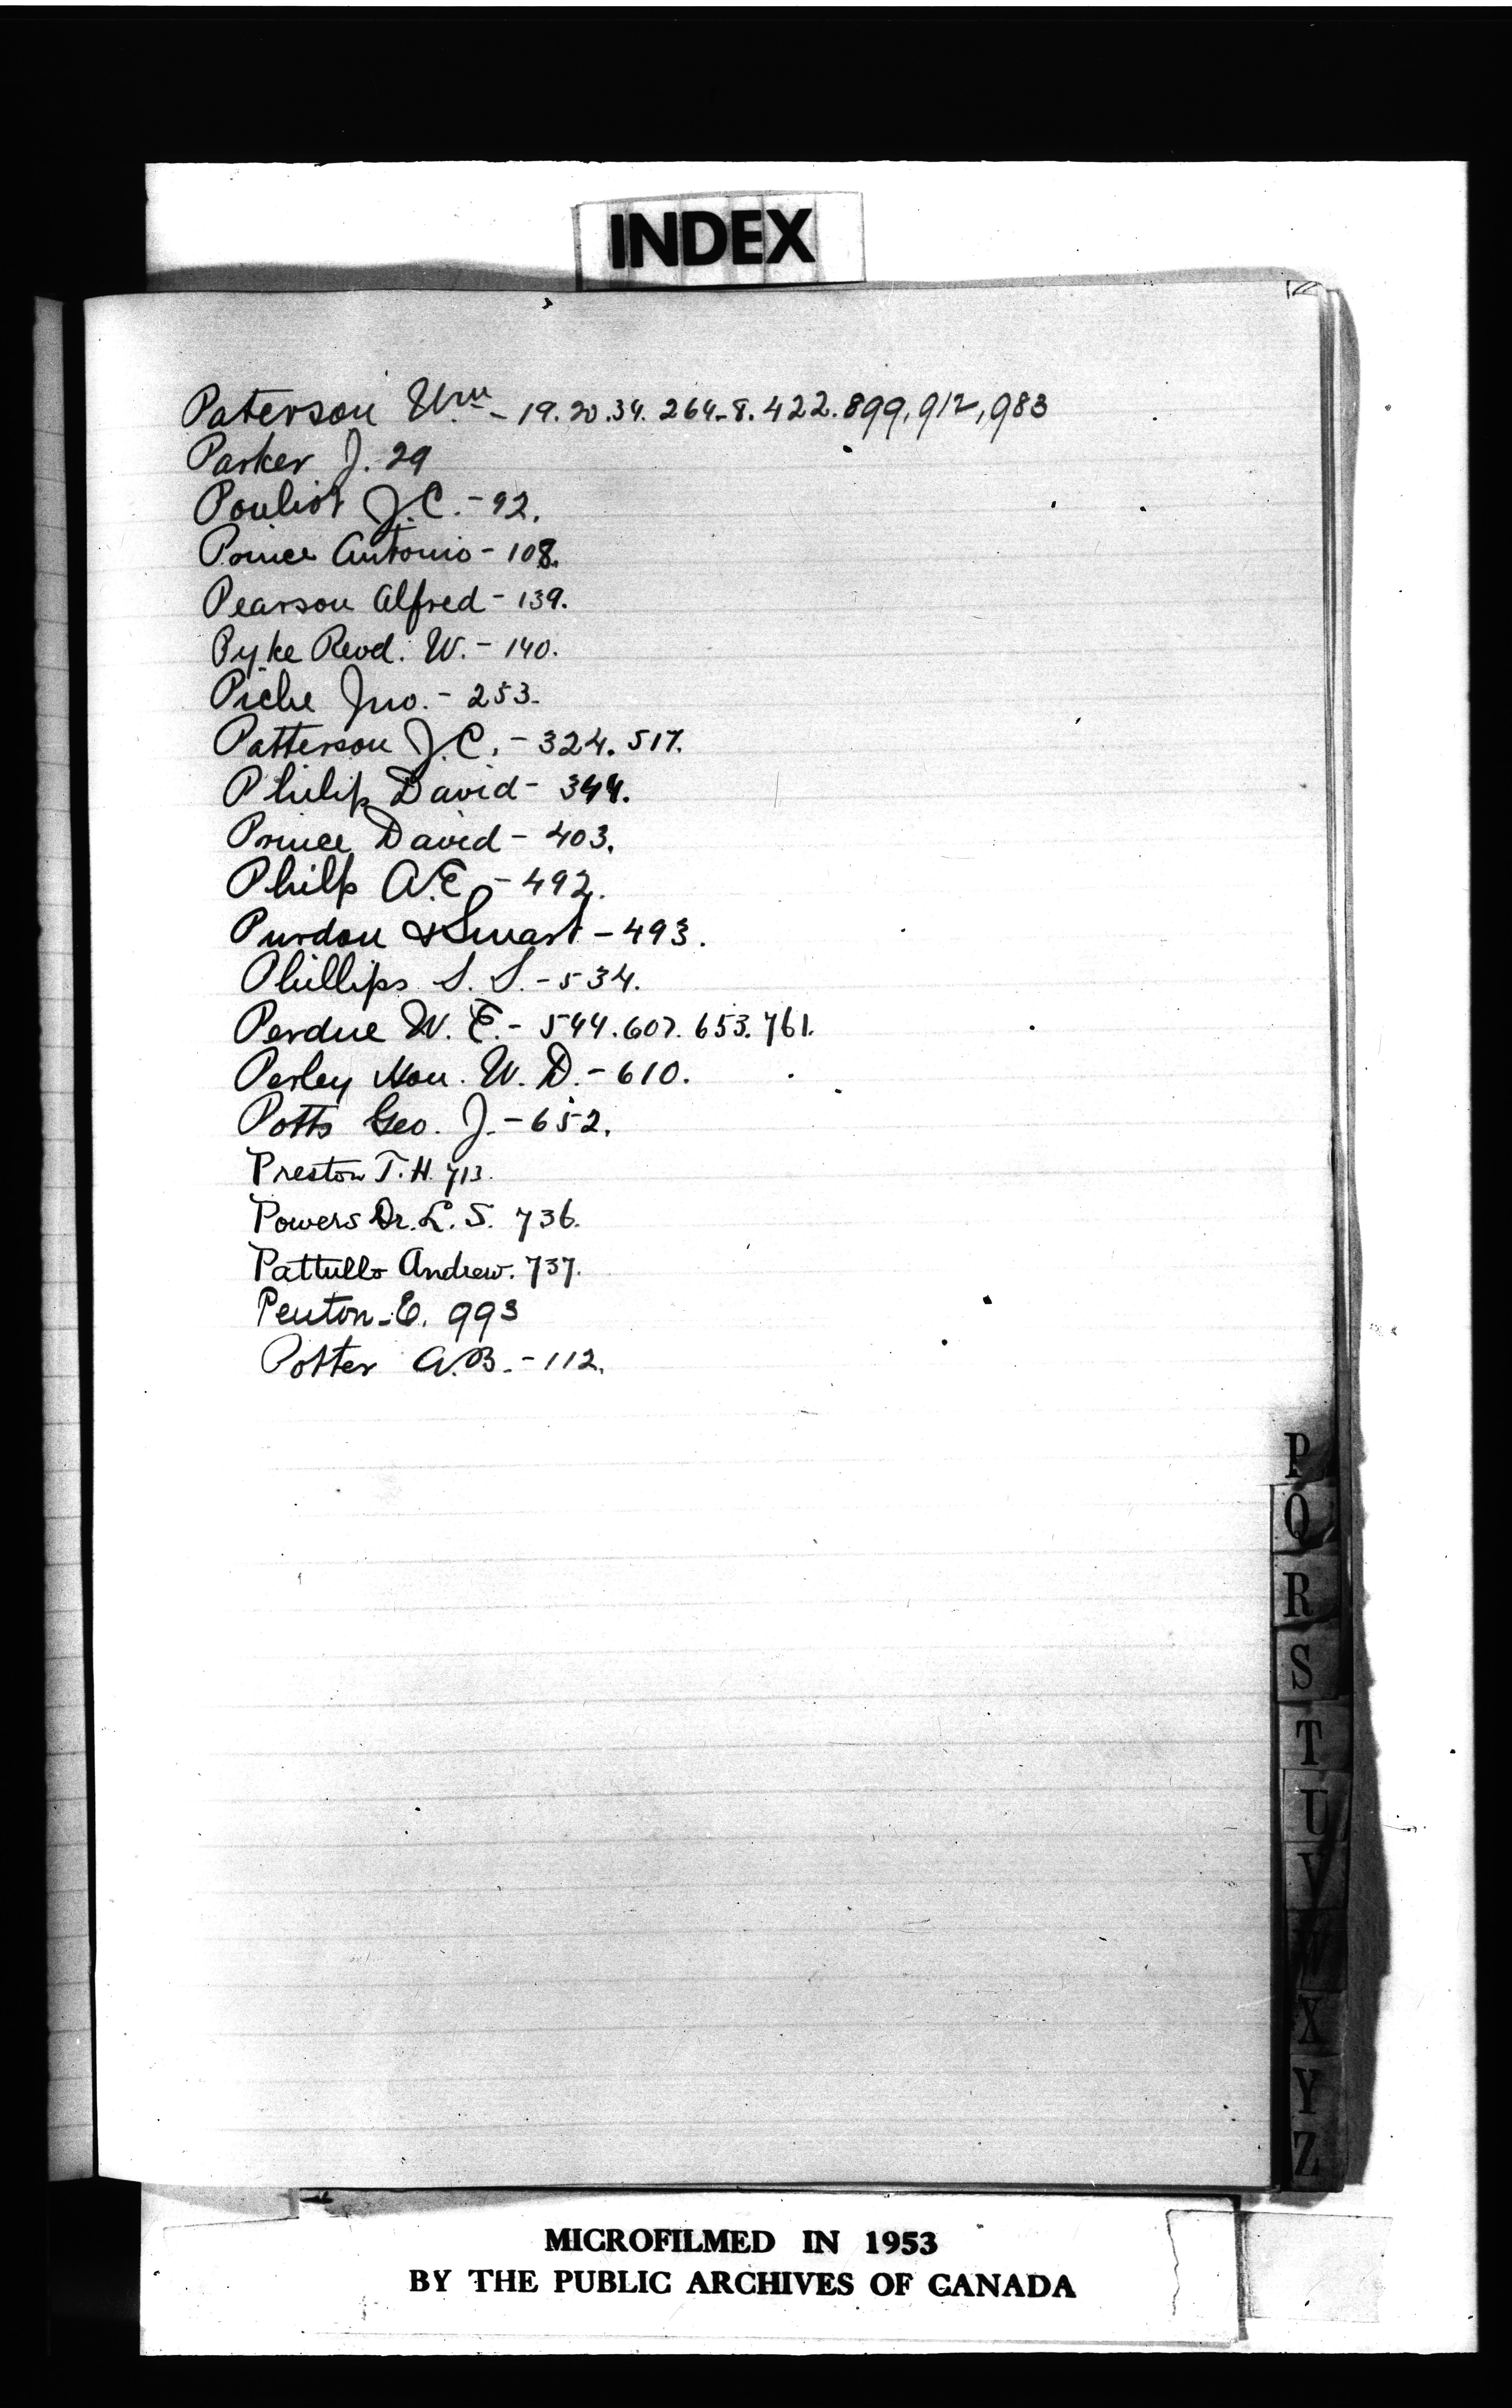 INDEX
Paterson Wm - 19. 20. 34. 264-8. 422. 899, 912, 983
Parker J. 29
Pouliot J.C. - 92.
Prince Antonio - 108.
Pearson Alfred - 139.
Pyke Revd. W. - 140.
Piche Jno. - 253.
Patterson J.C. - 324. 517.
Philip David - 344.
Prince David - 403.
Philp A.E. - 492.
Purdon & Smart - 493.
Phillips S. S. - 534.
Perdue W. E. - 544. 607. 653. 761.
Perley Hon. W. D. - 610.
Potts Geo. J. - 652.
Preston T. H. 713.
Powers Dr. L. S. 736.
Pattullo Andrew. 737.
Penton - E. 993
Potter A.B. - 112.
P
Q
R
S
T
U
V
W
X
Y
Z
MICROFILMED IN 1953
BY THE PUBLIC ARCHIVES OF CANADA